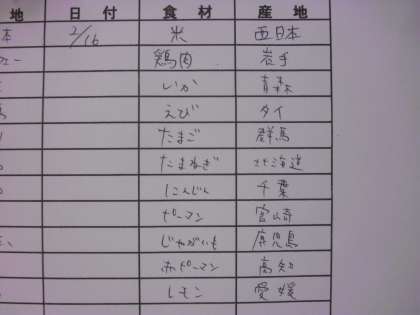 地 日付 食材 産地
本 2/16 米 西日本
鶏肉 岩手
いか 青森
えび タイ
たまご 群馬
たまねぎ 北海道
にんじん 千葉
ピーマン 宮崎
じゃがいも 鹿児島
赤ピーマン 高知
レモン 愛媛